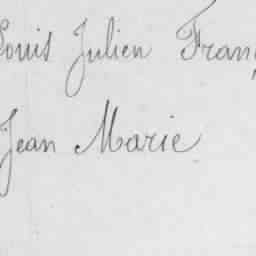 Louis Julien Fran
Jean Marie